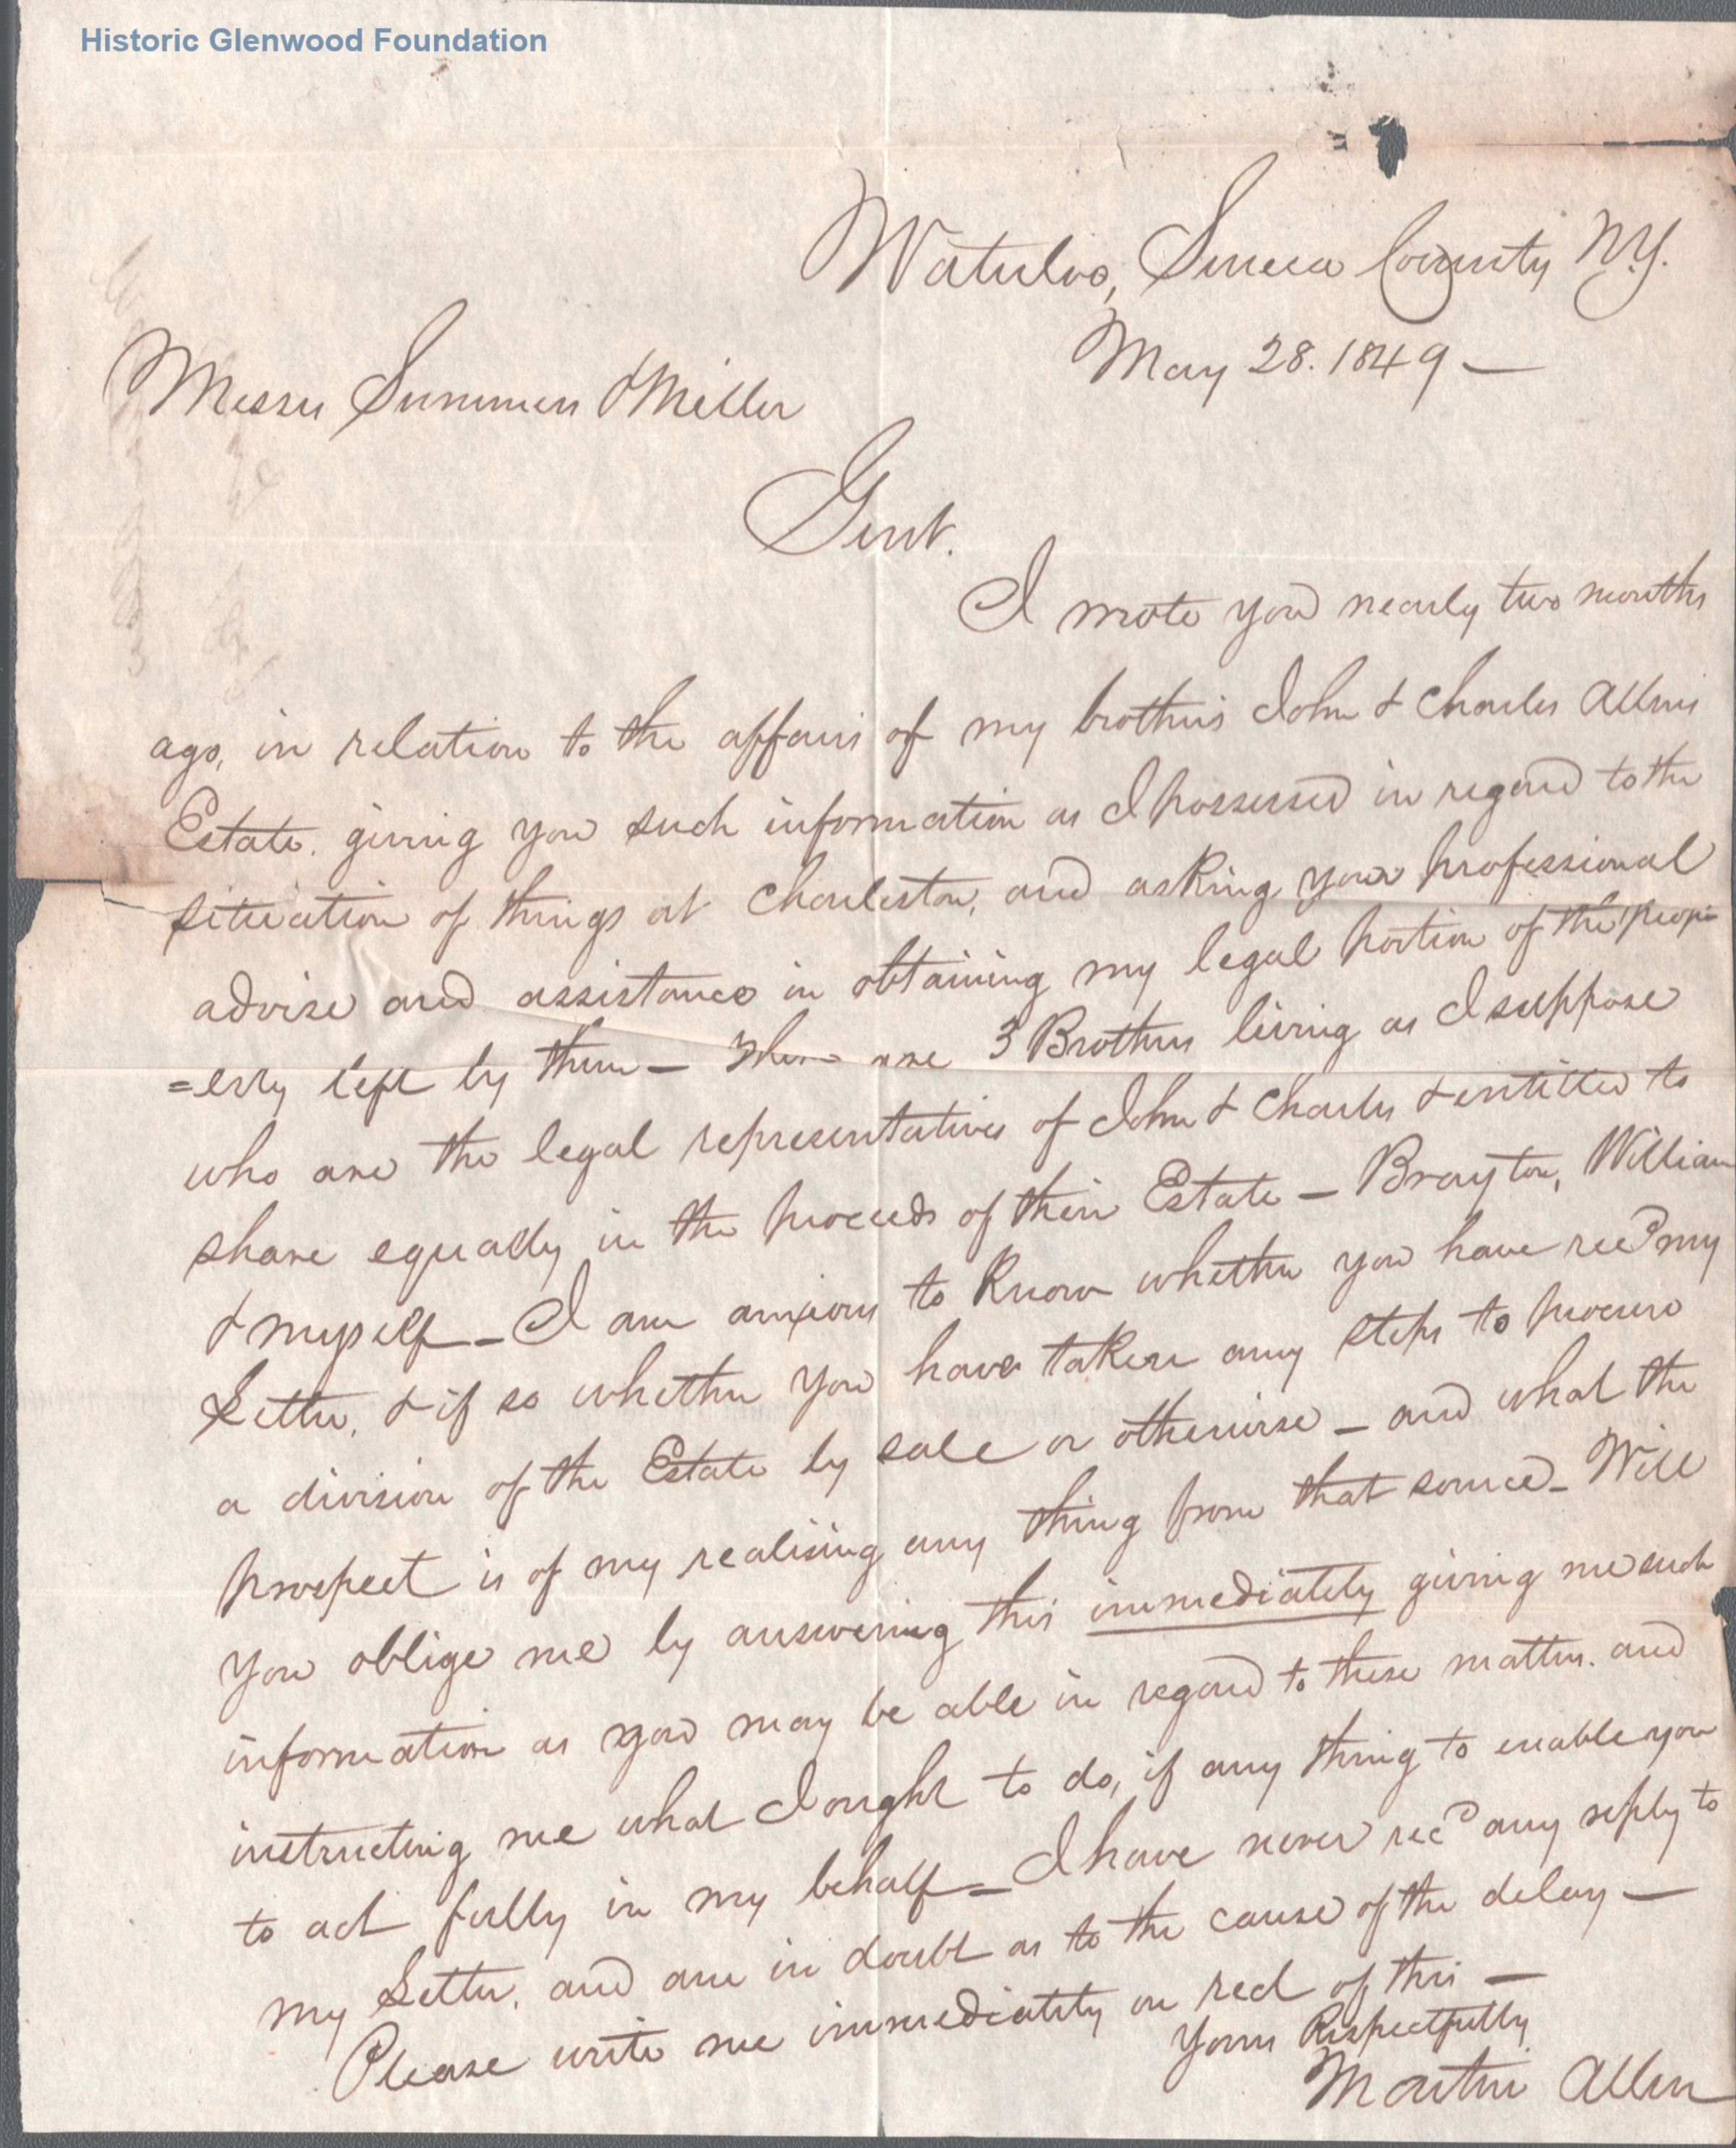 Historic Glenwood Foundation
Waterloo, Seneca County N.Y.
May 28. 1849 —
Messrs Summers & Miller
Gent.
I wrote you nearly two months
ago, in relation to the affairs of my brothers John & Charles Allens
Estate. giving you such information as I possessed in regard to the
situation of things at Charleston, and asking your professional
advise and assistance in obtaining my legal portion of the prop
=erty left by them — There are 3 Brothers living as I suppose
who are the legal representatives of John & Charles & entitled to
share equally in the proceeds of their Estate — Brayton, William
& myself — I am anxious to know whether you have recd my
Letter, & if so whether you have taken any steps to procure
a division of the Estate by sale or otherwise — and what the
prospect is of my realising any thing from that source — Will
you oblige me by answering this immediately giving me such
information as you may be able in regard to these matters. and
instructing me what I ought to do, if any thing to enable you
to act fully in my behalf = I have never recd any reply to
my Letter, and am in doubt as to the cause of the delay —
Please write me immediately on rect of this —
Yours Respectfully
Martin Allen